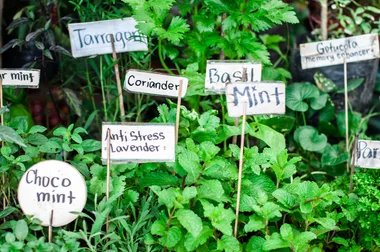 Tarragon
Gotucola
Memory enhancer
mint
Coriander
Basil
Mint
Anti Stress
Lavender.
Choco
mint